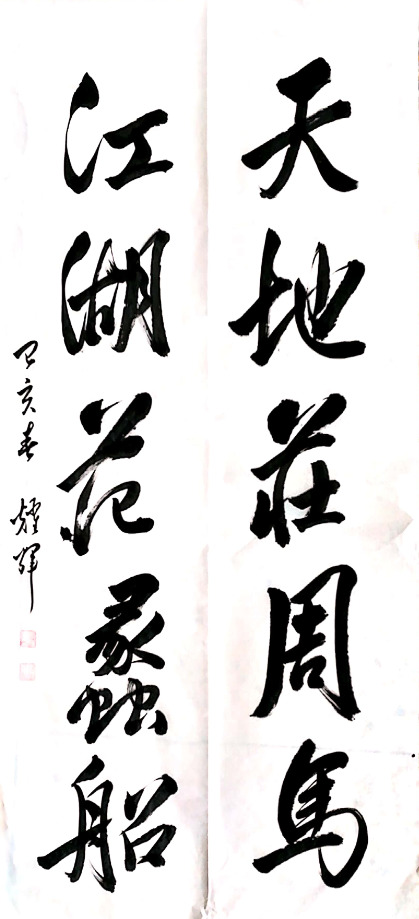 天地莊周馬
江湖范蠡船
己亥春 耀輝